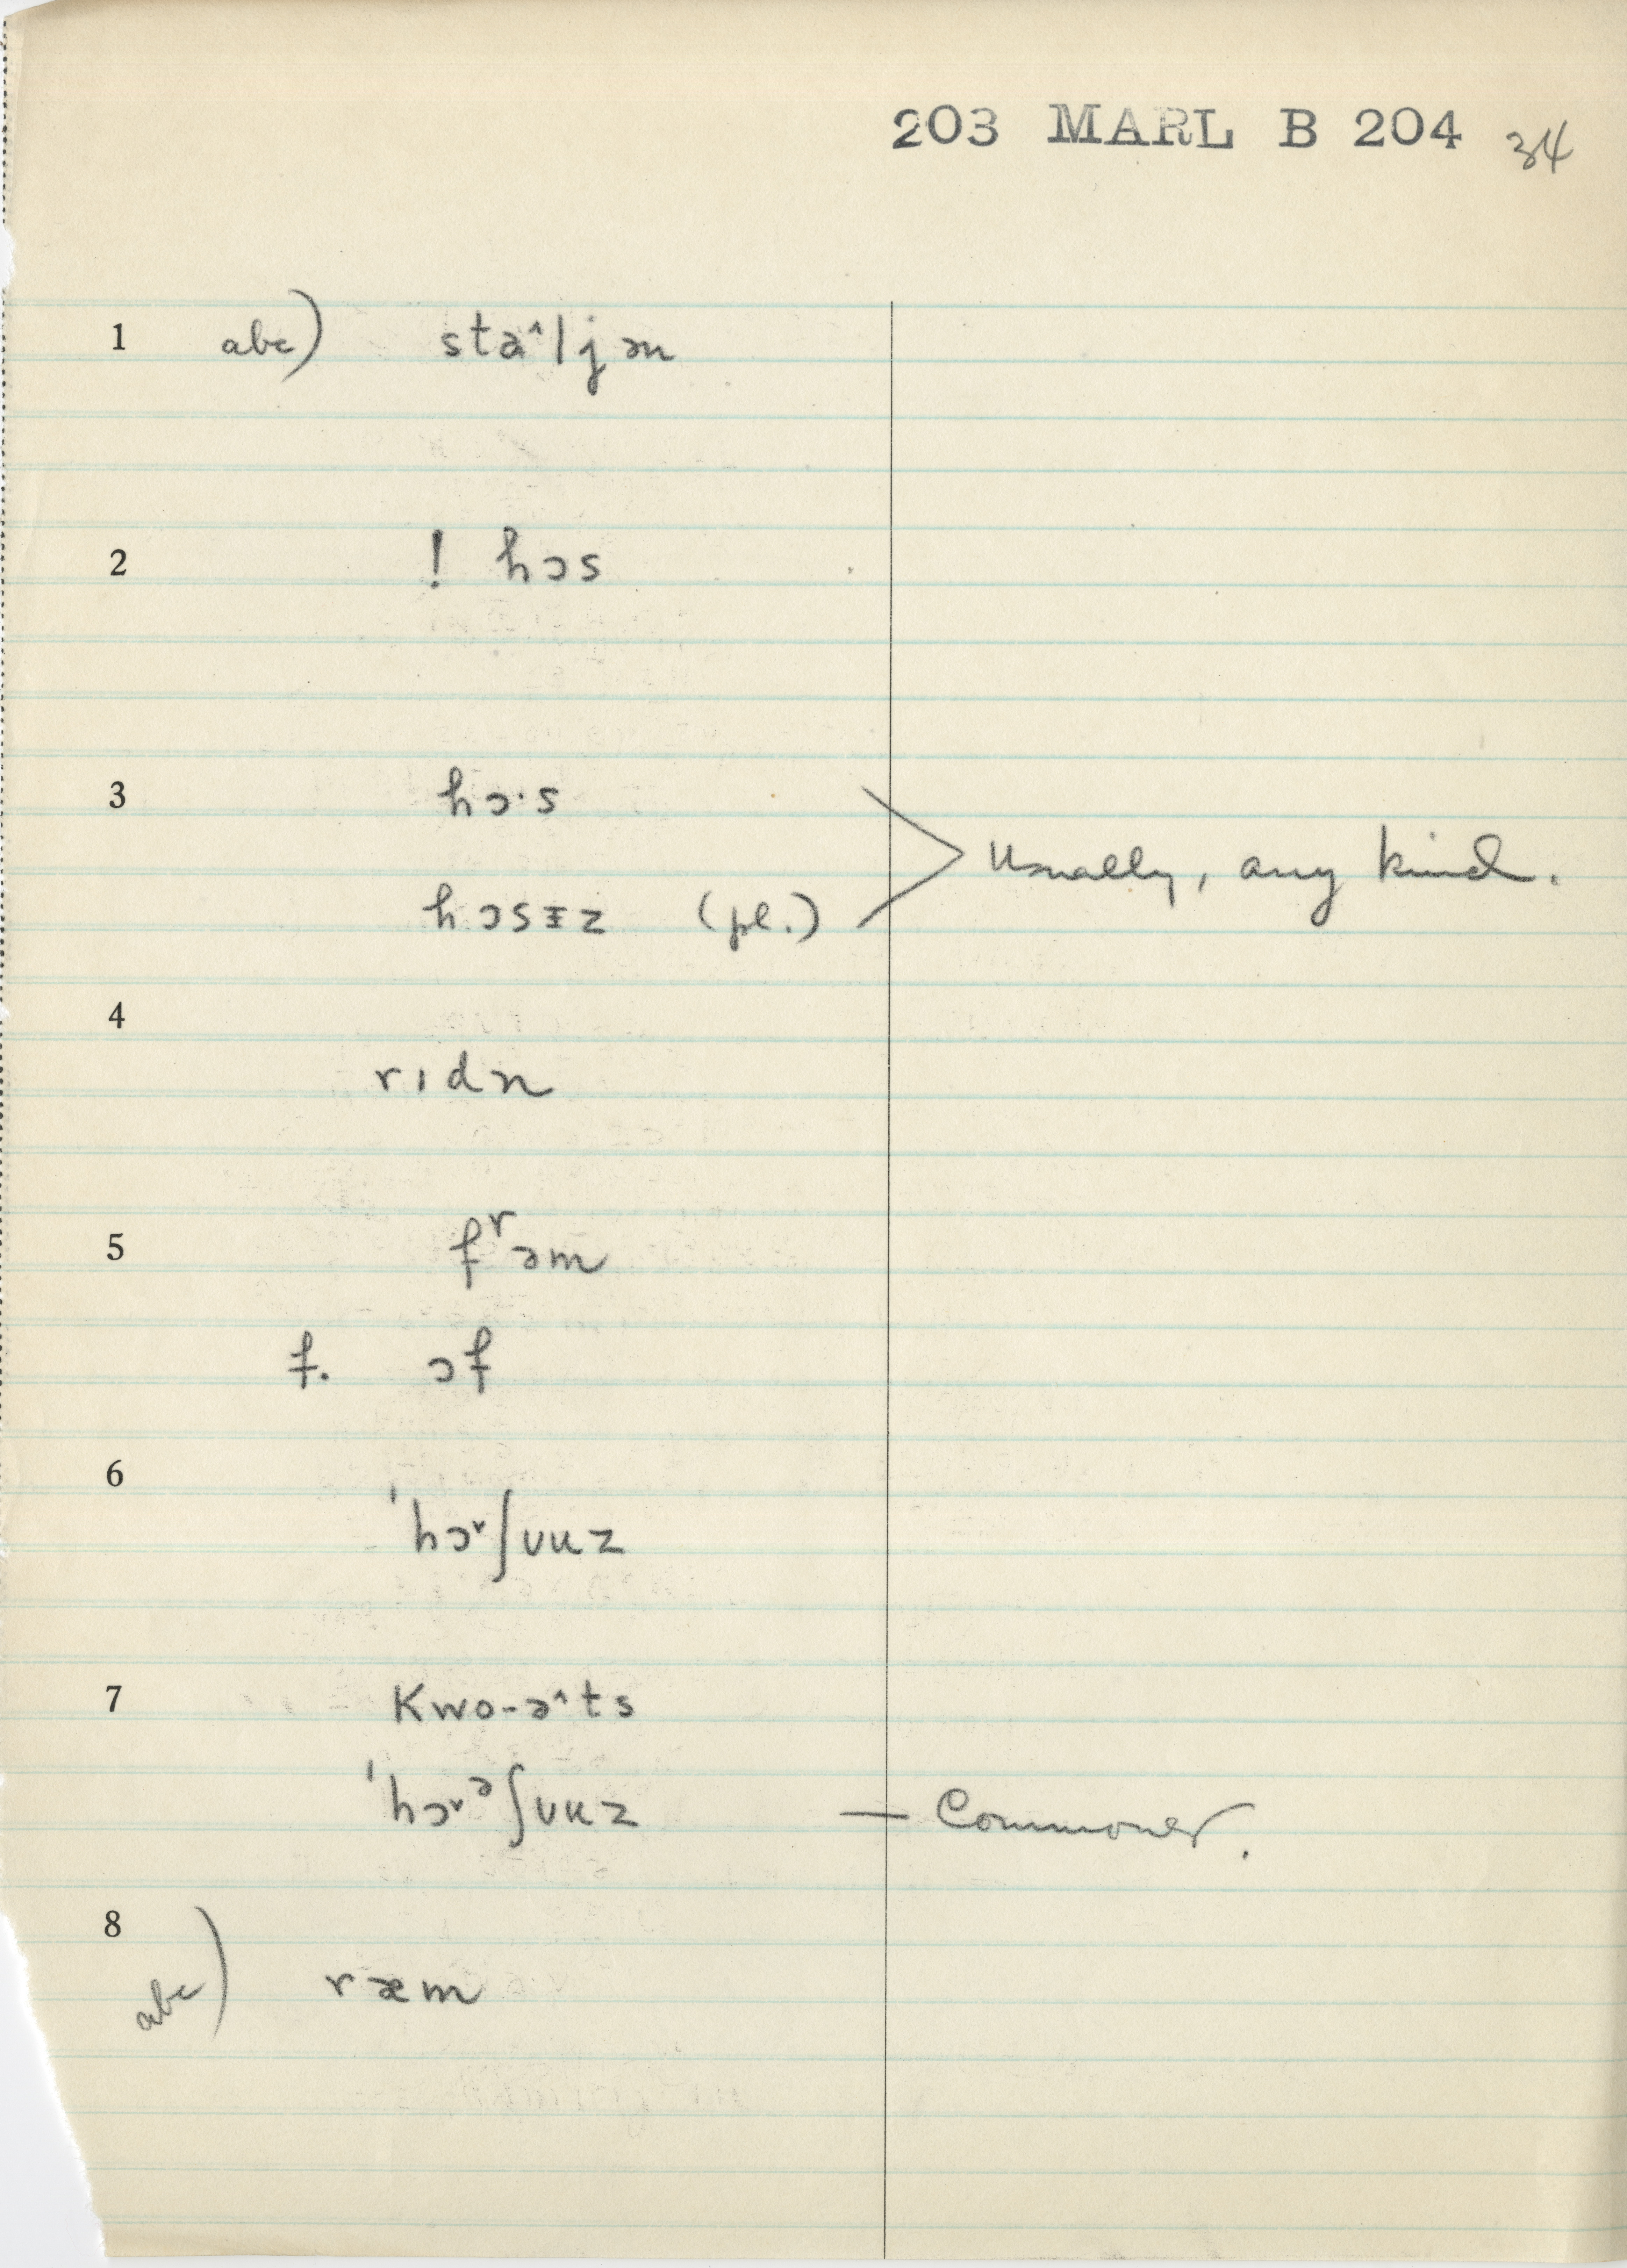 203 MARL B 204 34
1 abc) sta^ljən
2 ! hɔs
3 hɔ·s
Usually, any kind.
hɔsɪz (pl.)
4
rɪdn
5 fʳəm
f. ɔf
6
'hɔʳʃuuz
7 Kwo-ə^ts
'hɔʳᵊʃuuz — Commoner.
8
abc) ræm